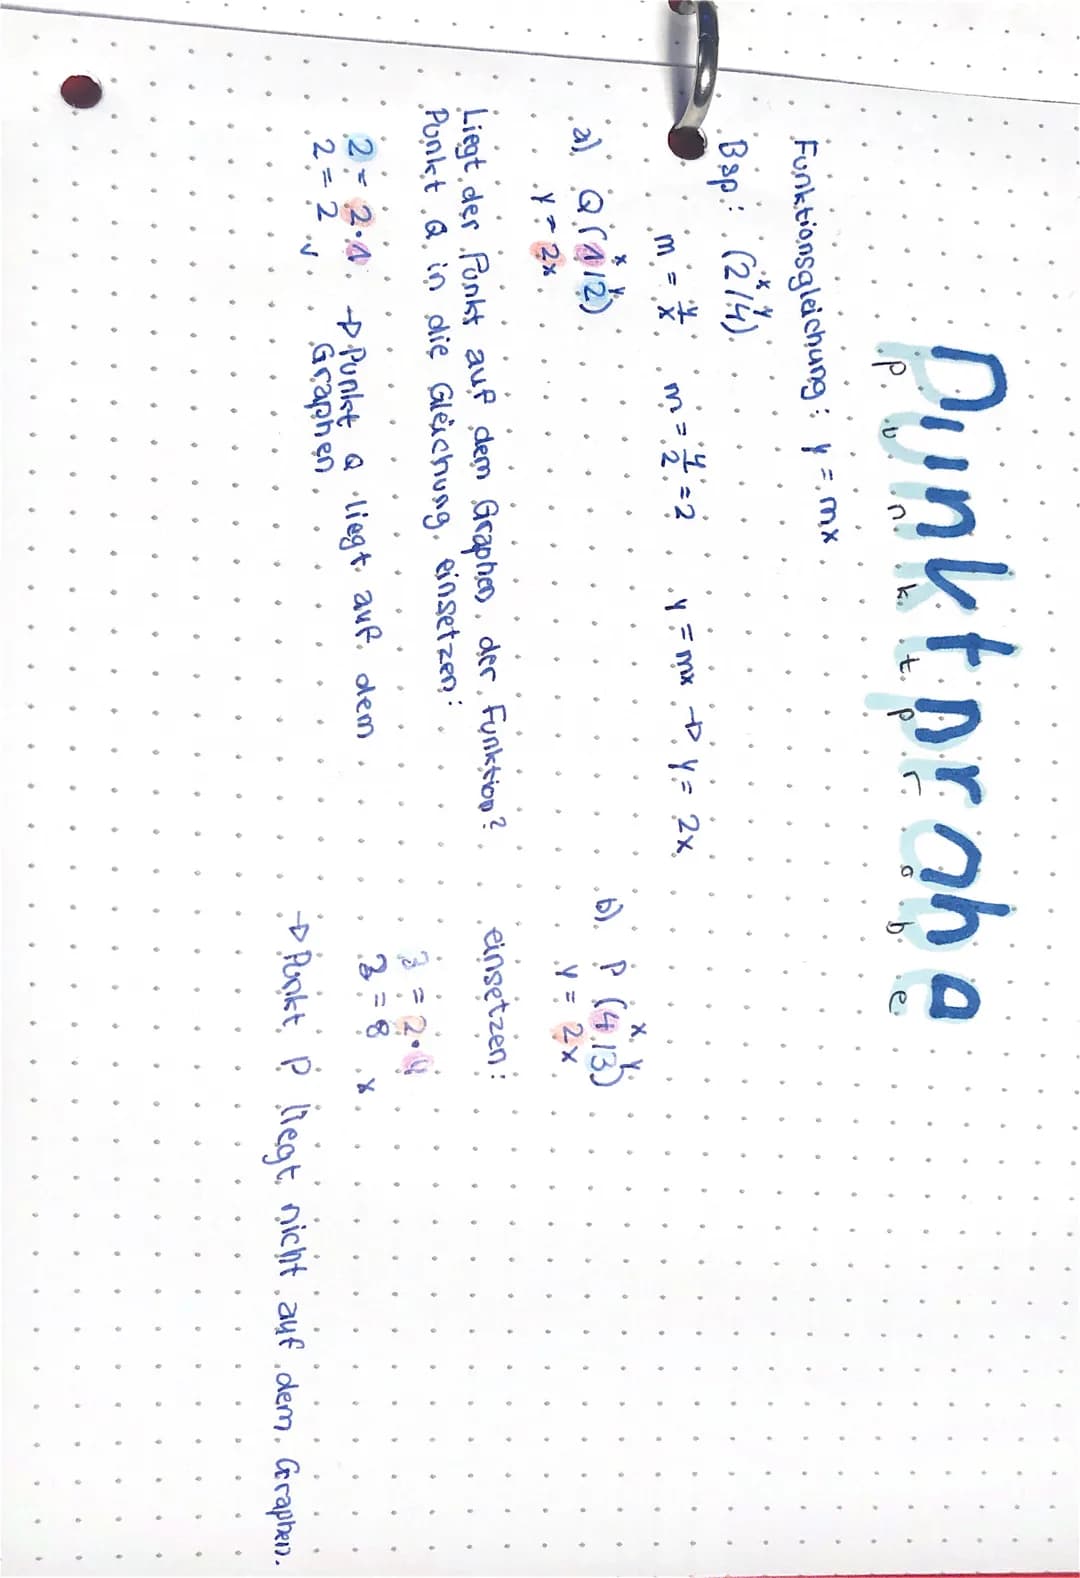 Punktprobe
Punktprobe
Funktionsgleichung: y = mx
Bsp: (2/4)
x y
m = y/x m = 4/2 = 2 y = mx → y = 2x
a) Q (1/2)
x y
y = 2x
Liegt der Punkt auf dem Graphen der Funktion?
Punkt Q in die Gleichung einsetzen:
2 = 2·1 → Punkt Q liegt auf dem
2 = 2 ✓ Graphen
b) P (4/3)
x y
y = 2x
einsetzen:
3 = 2·4
3 = 8 x
→ Punkt P liegt nicht auf dem Graphen.